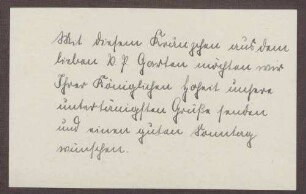 Mit diesem Kränzchen aus dem
lieben D. J. Garten möchten wir
Ihrer Königlichen Hoheit unsere
untertänigsten Grüße senden
und einen guten Sonntag
wünschen.